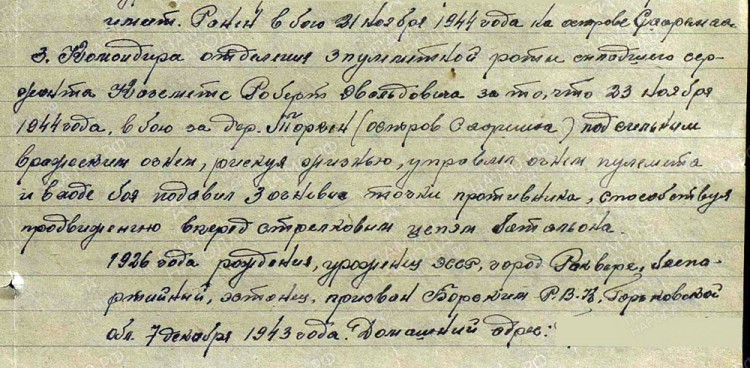 имат. Ранен в бою 21 ноября 1944 года на острове Сааремаа
3. Командира отделения 3 пулеметной роты младшего сер-
жанта Каземетс Роберт Эвальдовича за то, что 23 ноября
1944 года, в бою за дер. Торкен (остров Сааремаа) под сильным
вражеским огнем, рискуя жизнью, управлял огнем пулемета
и в ходе боя подавил 3 огневые точки противника, способствуя
продвижению вперед стрелковым цепям батальона.
1926 года рождения, уроженец ЭССР, город Раквере, беспа-
ртийный, эстонец, призван Борским Р.В.К. Горьковской
обл. 7 декабря 1943 года. Домашний адрес: